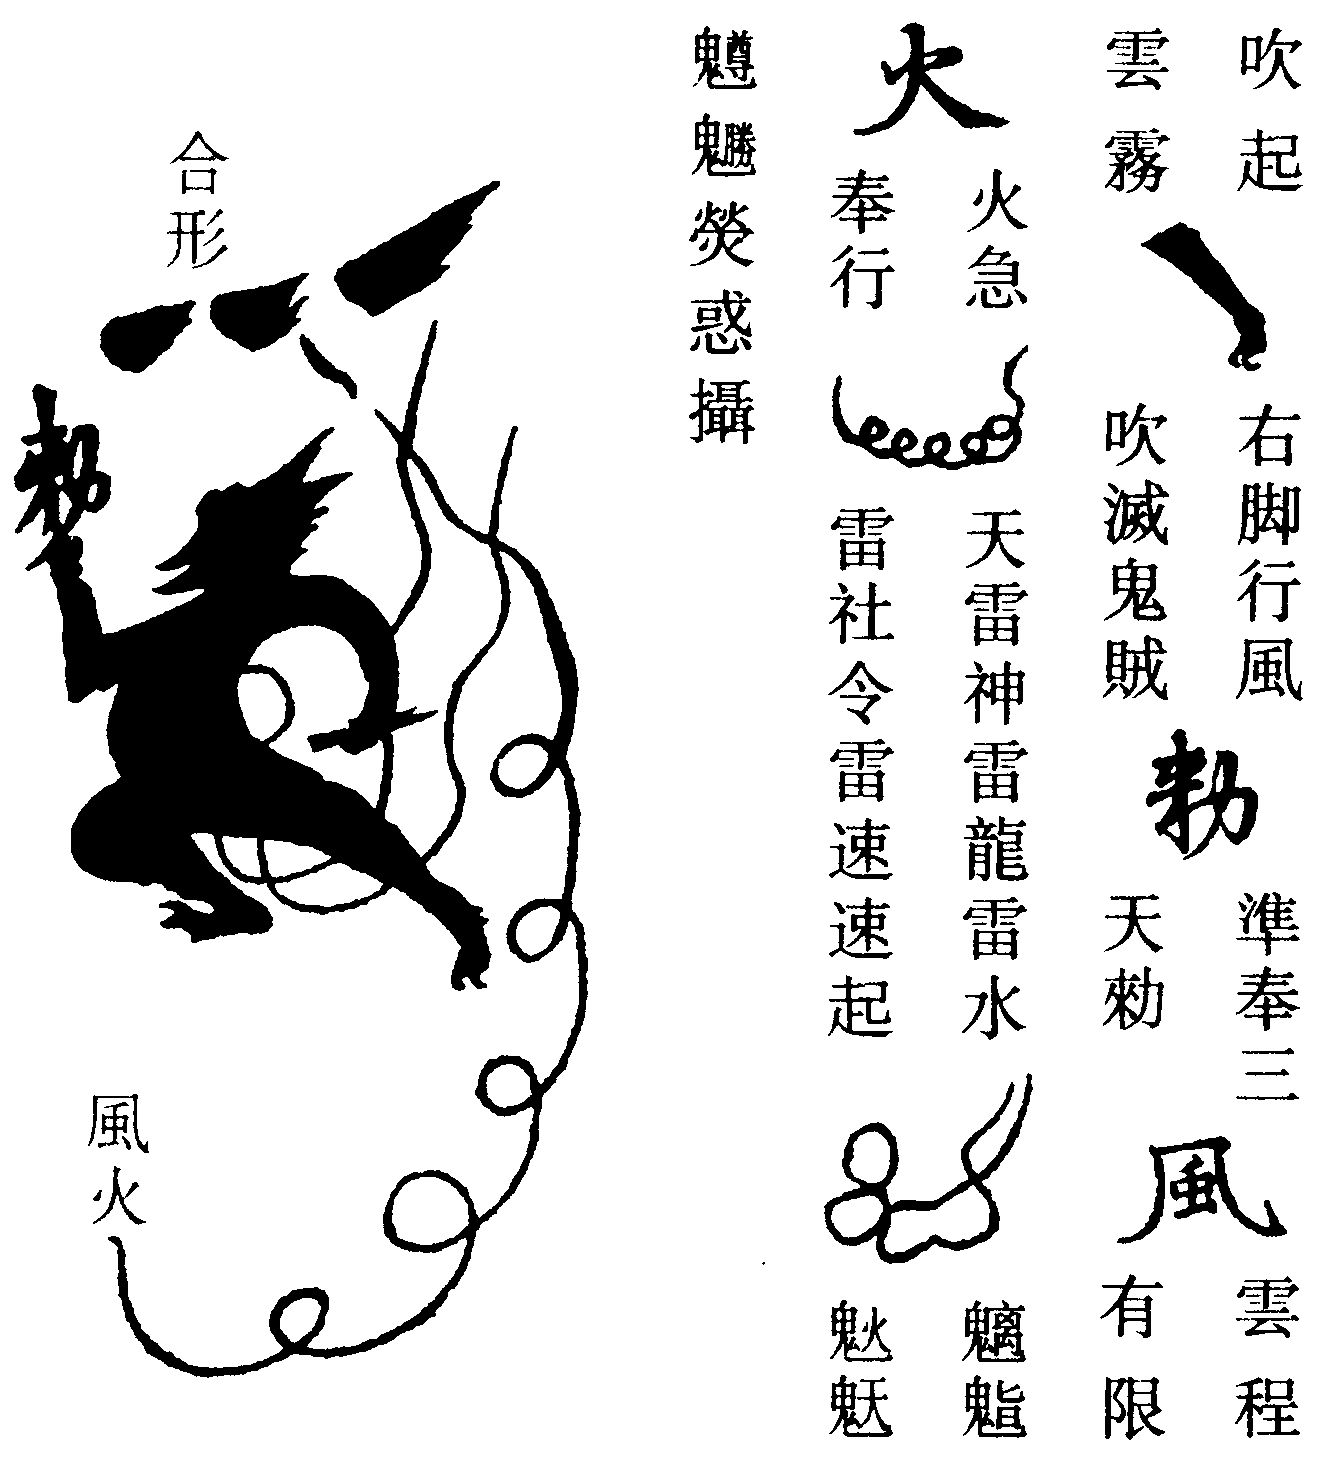 吹起
雲霧
右脚行風
吹滅鬼賊
勑
準奉三
天勑
風
雲程
有限
火
火急
奉行
天雷神雷龍雷水
雷社令雷速速起
魑
熒惑攝
合形
勑
風火